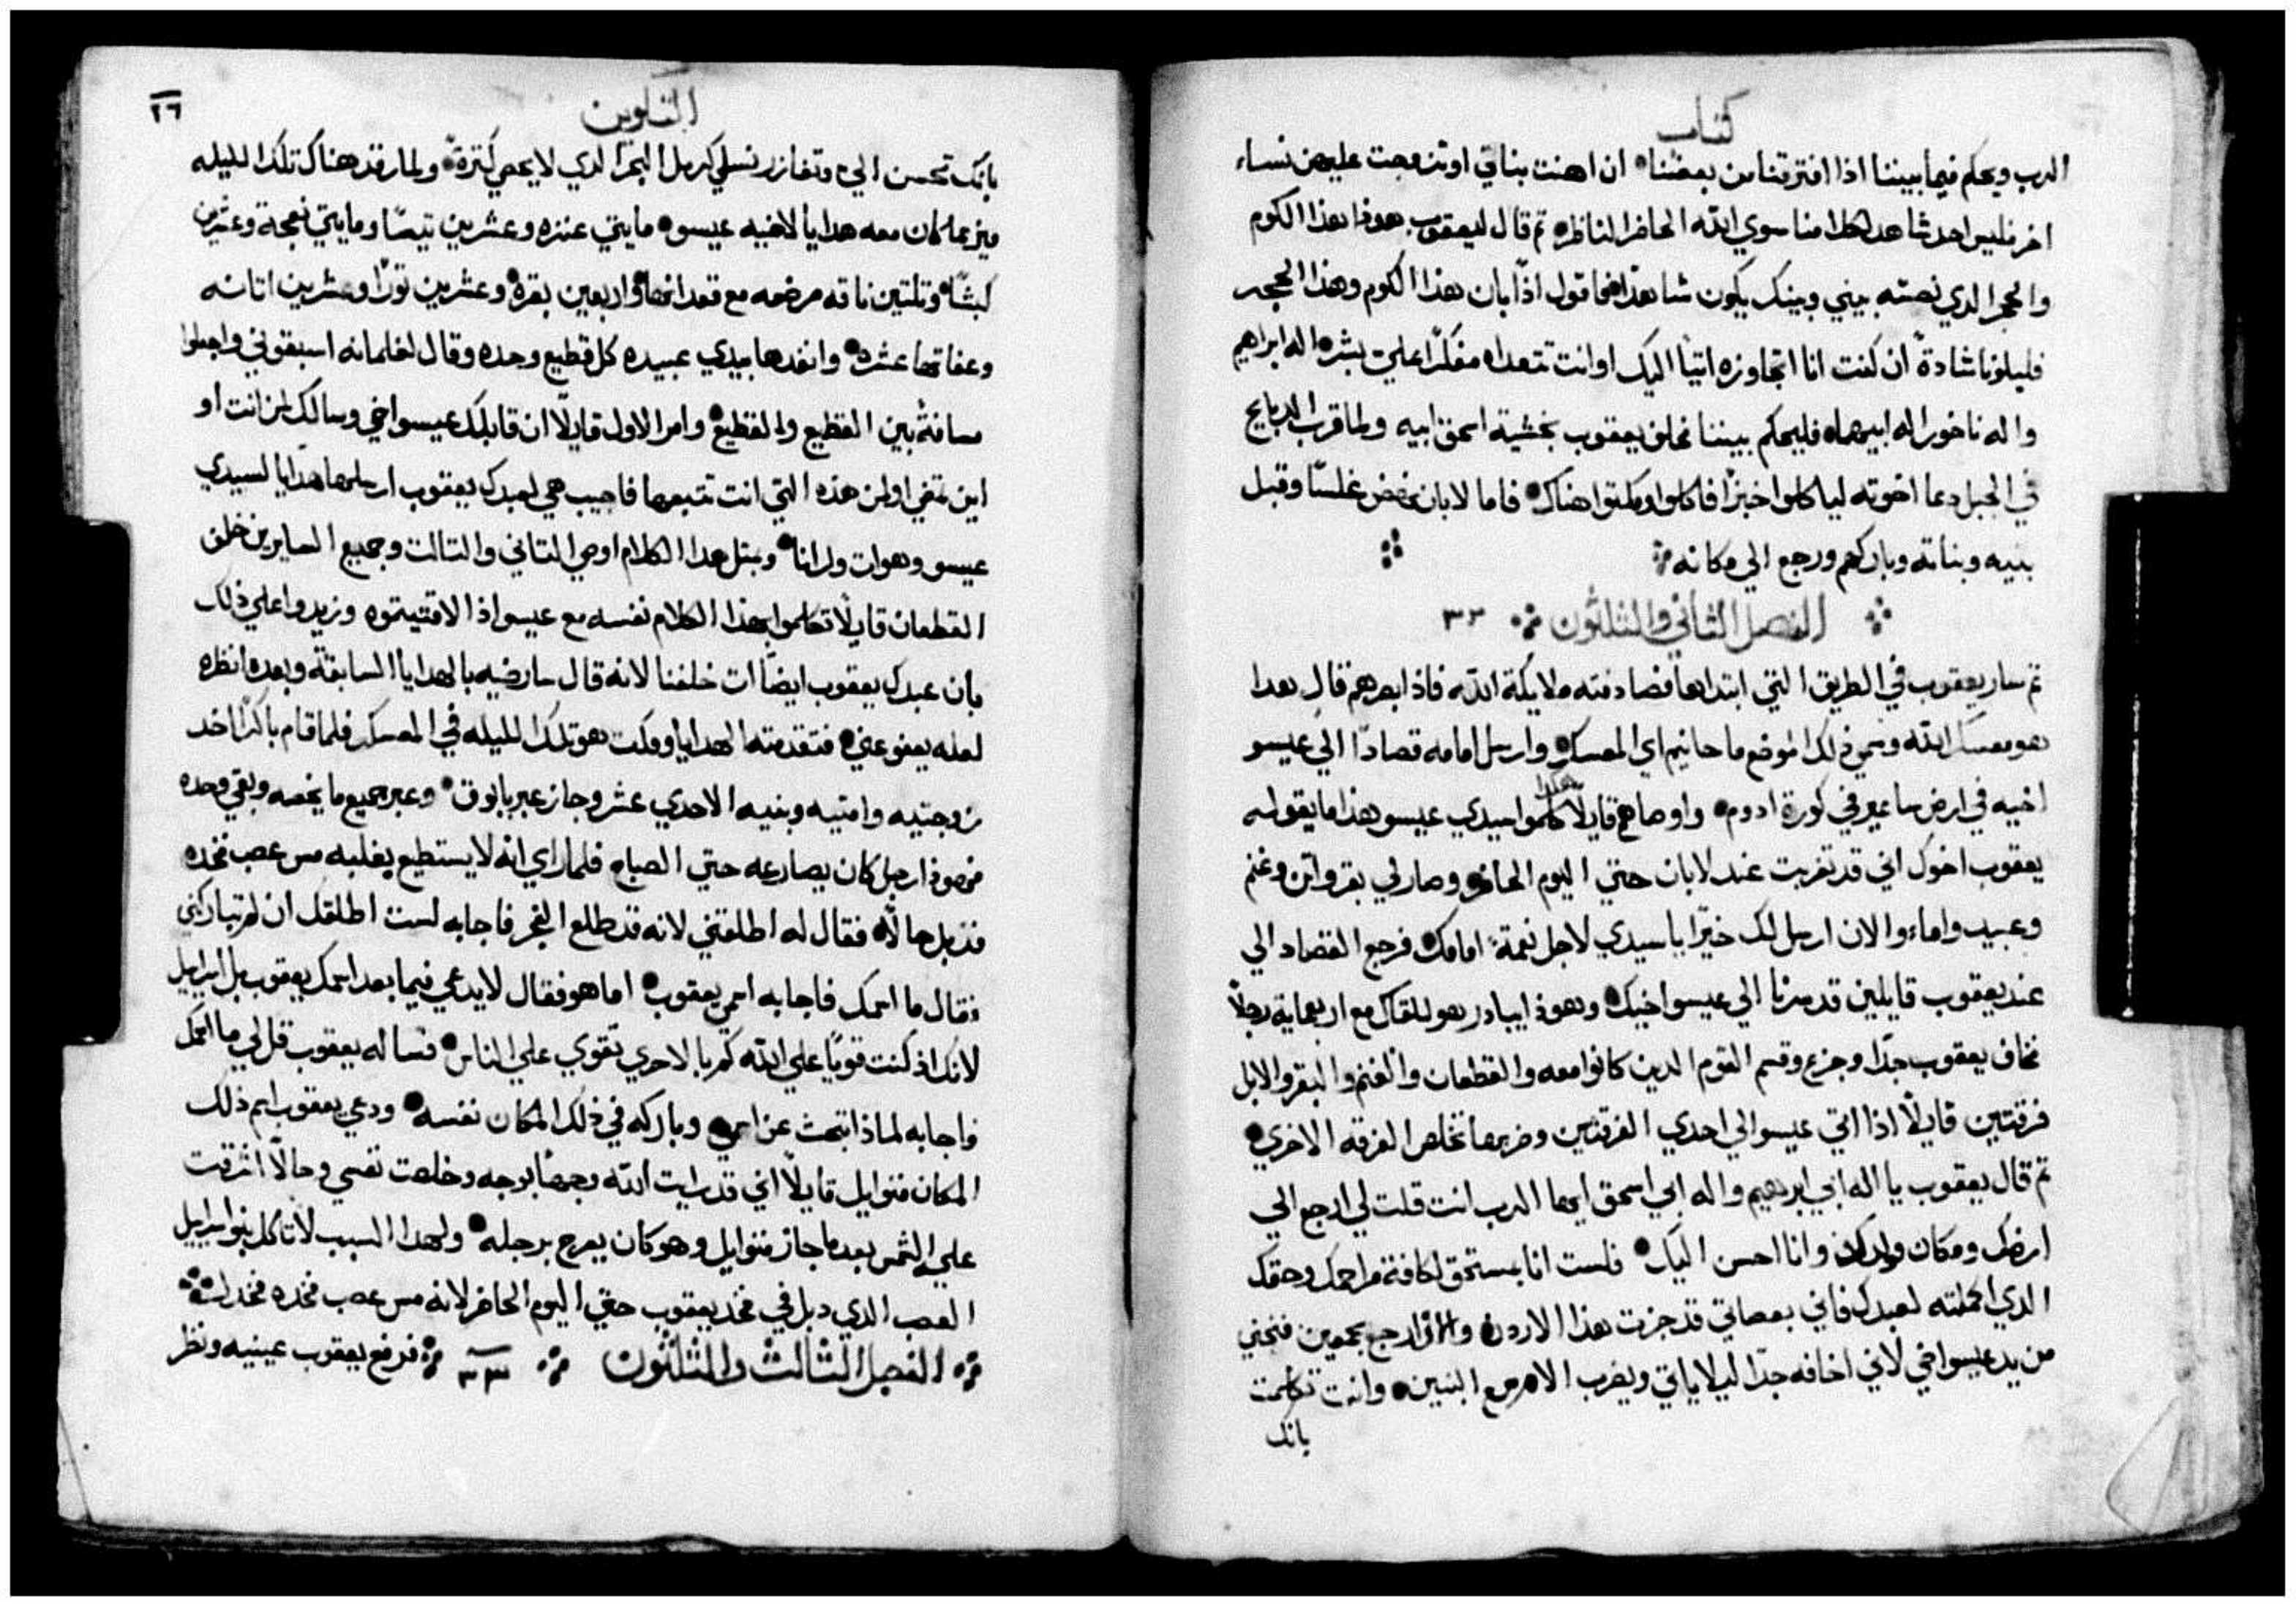 كتاب
الرب ويحكم فيما بيننا اذا افترقنا من بعضنا ان اهنت بناتي او تزوجت عليهن نساء
اخر فليس احد شاهد لكلامنا سوي الله الحاضر الناظر تم قال ليعقوب هوذا هذا الكوم
والحجر الدي نصبته بيني وبينك يكون شاهدا فاقول اذا بان هذا الكوم وهذا الحجر
فليلونا شادة ان كنت انا اتجاوزه اتيا اليك او انت تتعداه مفكرا علي بشر اله ابراهيم
واله ناخور اله ابيهما فليحكم بيننا فحلف يعقوب بخشية اسحق ابيه ولما قرب الدبايح
في الجبل دعا اخوته لياكلوا خبزا فاكلوا ومكتوا هناك فاما لابان نهض غلسا وقبل
بنيه وبناته وباركهم ورجع الي مكانه
الفصل الثاني والثلثون ٣٢
تم سار يعقوب في الطريق التي ابتداها فصادفته ملايكة الله فاذ ابصرهم قال هدا
هو معسكر الله وسمي ذلك الموضع ماحانيم اي المعسكر وارسل امامه قصادا الي عيسو
اخيه في ارض ساعير في كورة ادوم واوصاهم قايلا هكذا كلموا سيدي عيسو هذا ما يقوله
يعقوب اخوك اني قد تغربت عند لابان حتي اليوم الحاضر وصار لي بقر واتن وغنم
وعبيد واماء والان ارسل لك خبرا يا سيدي لاجل نعمة امامك فرجع القصاد الي
عند يعقوب قايلين قد سرنا الي عيسو اخيك وهوذا يبادر هو للقاك مع اربعماية رجلا
فخاف يعقوب جدا وجزع وقسم القوم الدين كانوا معه والقطعان والغنم والبقر والابل
فرقتين قايلا اذا اتي عيسو الي احدي الفرقتين وضربها تخلص الفرقه الاخري
تم قال يعقوب يا اله ابي ابرهيم واله ابي اسحق ايها الرب انت قلت لي ارجع الي
ارضك ومكان ولدك وانا احسن اليك فلست انا بمستحق لكافة مراحمك وحقك
الدي اكملته لعبدك فاني بعصاتي قد جزت هذا الاردن والان ارجع بجمعين فنجني
من يد عيسو اخي لاني اخافه جدا ليلا ياتي ويضرب الام مع البنين وانت تكلمت
بانك
التكوين
٢٦
بانك تحسن الي وتغازر نسلي كرمل البحر الدي لا يحصي كترة ولما رقد هناك تلك الليله
ميز مما كان معه هدايا لاخيه عيسو مايتي عنزه وعشرين تيسا ومايتي نعجة وعشرين
كبشا وتلتين ناقه مرضعه مع قعدانها واربعين بقره وعشرين تورا وعشرين اتانه
وعفاتها عشره وانفدها بيدي عبيده كل قطيع وحده وقال لغلمانه اسبقوني واجعلوا
مسافة بين القطيع والقطيع وامر الاول قايلا ان قابلك عيسو اخي وسالك لمن انت او
اين تمضي او لمن هذه التي انت تتبعها فاجيب هي لعبدك يعقوب ارسلها هدايا لسيدي
عيسو وهو ات ورانا وبمتل هدا الكلام اوصي التاني والتالت وجميع السايرين خلف
القطعان قايلا تكلموا بهذا الكلام نفسه مع عيسو اذا لاقيتموه وزيدوا علي ذلك
بان عبدك يعقوب ايضا ات خلفنا لانه قال سارضيه بالهدايا السابقة وبعده انظره
لعله يعفو عني فتقدمته الهدايا ومكت هو تلك الليله في المعسكر فلما قام باكرا اخد
زوجتيه وامتيه وبنيه الاحدي عشر وجاز عبر يابوق وعبر جميع ما يخصه وبقي وحده
فهوذا رجل كان يصارعه حتي الصباح فلما راي انه لا يستطيع يغلبه مس عصب فخده
فذبل حالا فقال له اطلقني لانه قد طلع الفجر فاجابه لست اطلقك ان لم تباركني
فقال ما اسمك فاجابه اسمي يعقوب اما هو فقال لا يدعي فيما بعد اسمك يعقوب بل اسراييل
لانك اذ كنت قويا علي الله كم بالاحري تقوي علي الناس فساله يعقوب قل لي ما اسمك
فاجابه لماذا تبحث عن اسمي وباركه في ذلك المكان نفسه ودعي يعقوب اسم ذلك
المكان فنوايل قايلا اني قد رايت الله وجها بوجه وخلصت نفسي وحالا اشرقت
عليه الشمس بعد ما جاز فنوايل وهو كان يعرج برجله ولهدا السبب لا تاكل بنو اسراييل
العصب الدي دبل في فخد يعقوب حتي اليوم الحاضر لانه مس عصب فخده فخدلت
الفصل الثالث والثلثون ٣٣ فرفع يعقوب عينيه ونظر